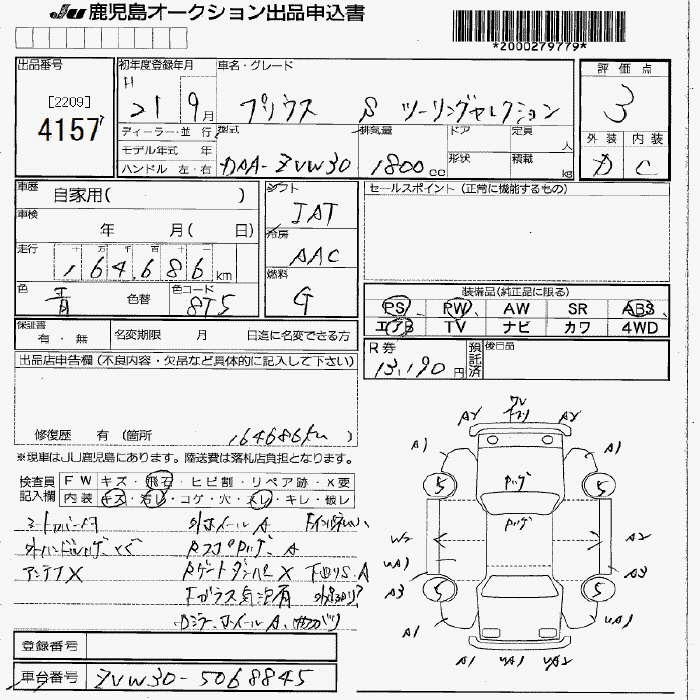 JU 鹿児島オークション出品申込書
*2000279779*
出品番号
[2209]
4157
初年度登録年月
H
21 9月
車名・グレード
プリウス S ツーリングセレクション
評価点
3
外装 内装
D C
ディーラー・並行
モデル年式 年
ハンドル 左・右
型式
DAA-ZVW30
排気量
1800cc
ドア
形状
定員
人
積載
kg
車歴
自家用( )
車検
年 月( 日)
走行
十 万 千 百 十 一
164,686 km
色
青
色替
色コード
8T5
シフト
IAT
冷房
AAC
燃料
G
セールスポイント(正常に機能するもの)
装備品(純正品に限る)
PS PW AW SR ABS
エアB TV ナビ カワ 4WD
保証書
有・無
名変期限 月 日迄に名変できる方
R券
13,190円
預託済
後日品
出品店申告欄(不良内容・欠品など具体的に記入して下さい)
修復歴 有 (箇所 164686km )
※現車はJU鹿児島にあります。陸送費は落札店負担となります。
検査員記入欄
FW キズ・飛石・ヒビ割・リペア跡・X要
内装 キズ・汚レ・コゲ・穴・スレ・キレ・破レ
シートカバー付 外ホイールA
アンテナX RゲートダンパーX 下回りS.A
Fガラス気泡有
A2 A2
A1 A1
5 5
W2 A2
UA1
A3 A3
5 5
A1 UA1
A1 UA1 UA2
登録番号
車台番号 ZVW30-5068845